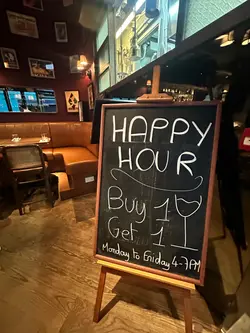 HAPPY
HOUR
Buy 1
Get 1
Monday to Friday 4-7PM